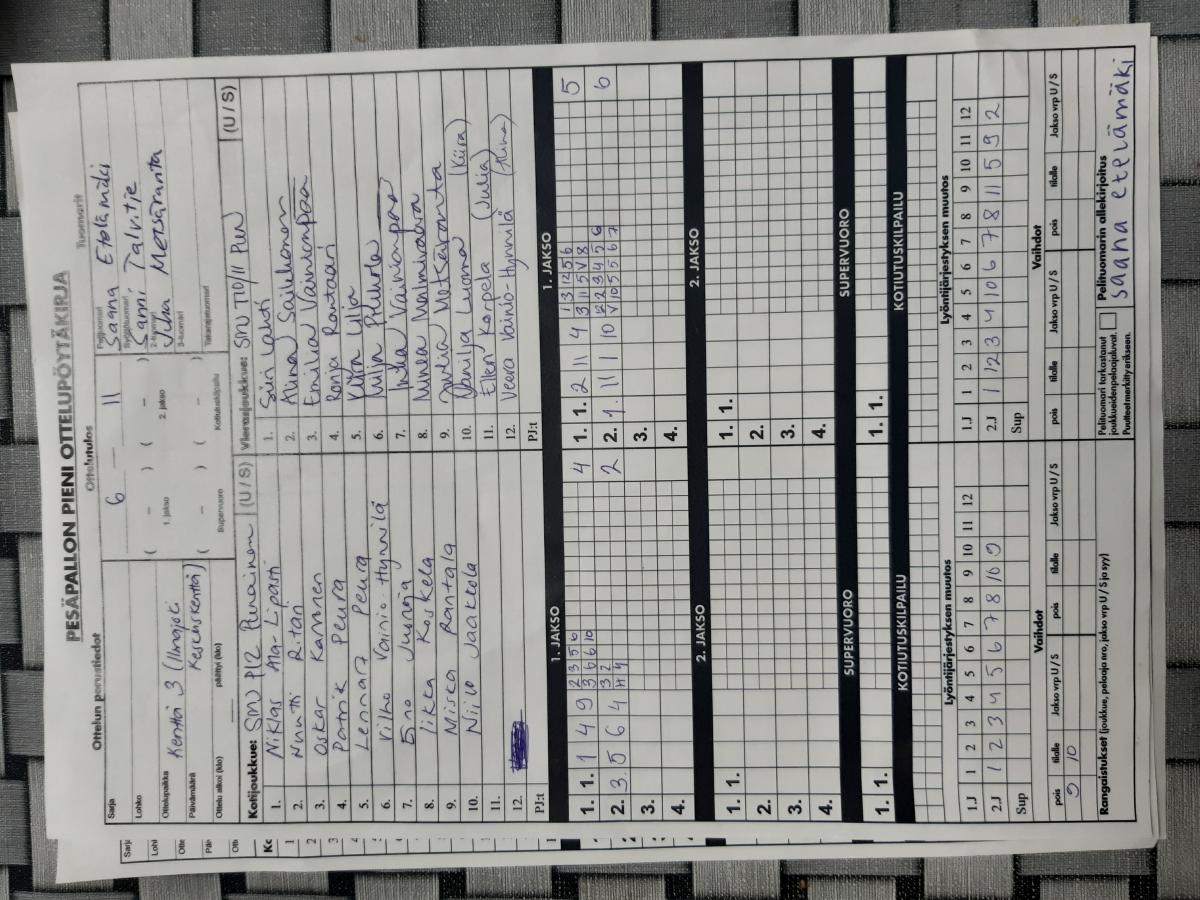 PESÄPALLON PIENI OTTELUPÖYTÄKIRJA
Ottelun perustiedot
Ottelutulos
Tuomarit
Sarja
Lohko
Ottelupaikka Kenttä 3 (Ilmajoki
Päivämäärä Keskuskenttä)
Ottelu alkoi (klo) päättyi (klo)
6 — 11
( – ) ( – )
1. jakso 2. jakso
( – ) ( – )
Supervuoro Kotiutuskilpailu
Pelituomari Saana Etelämäki
Syöttötuomari Sanni Talvitie
2-tuomari
3-tuomari Metsäranta
Takarajatuomari
Kotijoukkue: SMJ P12 Punainen (U / S)
1. Niklas Ala-Lipasti
2. Nuutti Ritari
3. Oskar Kamunen
4. Patrik Peura
5. Lennart Peura
6. Vilho Vainio-Hynnilä
7. Eino Jusnoja
8. Iikka Koskela
9. Miska Rantala
10. Niilo Jaakkola
11.
12.
PJ:t
Vierasjoukkue: SMJ T10/11 Pun (U / S)
1. Siiri Lahti
2. Alina Sailukonen
3. Emilia Vainionpää
4. Ronja Rantasari
5. Lilja
6. Milja Pihlaja
7. Inka Vainionpää
8. Minea Malmivaara
9. Matkaranta
10. Vanilja Luoma (Kiira)
11. Ellen Korpela (Julia)
12. Veera Vainio-Hynnilä (Alina)
PJ:t
1. JAKSO
1. 1. 1 4 9 4
2 3 5 6
3 6 6 10
2. 3. 5 6 4 2
3 2
4 4
3.
4.
1. JAKSO
1. 1. 2 11 4 5
1 3 12 5 6
3 11 5 V 8
2. 1. 11 11 10 6
12 2 3 4 5 6
V 10 5 5 6 7
3.
4.
2. JAKSO
1. 1.
2.
3.
4.
2. JAKSO
1. 1.
2.
3.
4.
SUPERVUORO
1. 1.
SUPERVUORO
1. 1.
KOTIUTUSKILPAILU
KOTIUTUSKILPAILU
Lyöntijärjestyksen muutos
1.J 1 2 3 4 5 6 7 8 9 10 11 12
2.J 1 2 3 4 5 6 7 8 10 9
Sup
Lyöntijärjestyksen muutos
1.J 1 2 3 4 5 6 7 8 9 10 11 12
2.J 1 12 3 4 10 6 7 8 11 5 9 2
Sup
Vaihdot
pois tilalle Jakso vrp U / S pois tilalle Jakso vrp U / S
9 10
Vaihdot
pois tilalle Jakso vrp U / S pois tilalle Jakso vrp U / S
Rangaistukset (joukkue, pelaaja nro, jakso vrp U / S ja syy)
Pelituomari tarkastanut
joukkueiden pelaajaluvat.
Puutteet merkitty erikseen.
Pelituomarin allekirjoitus
saana etelämäki
Sarj
Lohl
Otte
Päiv
Otti
Kc
1
2
3
4